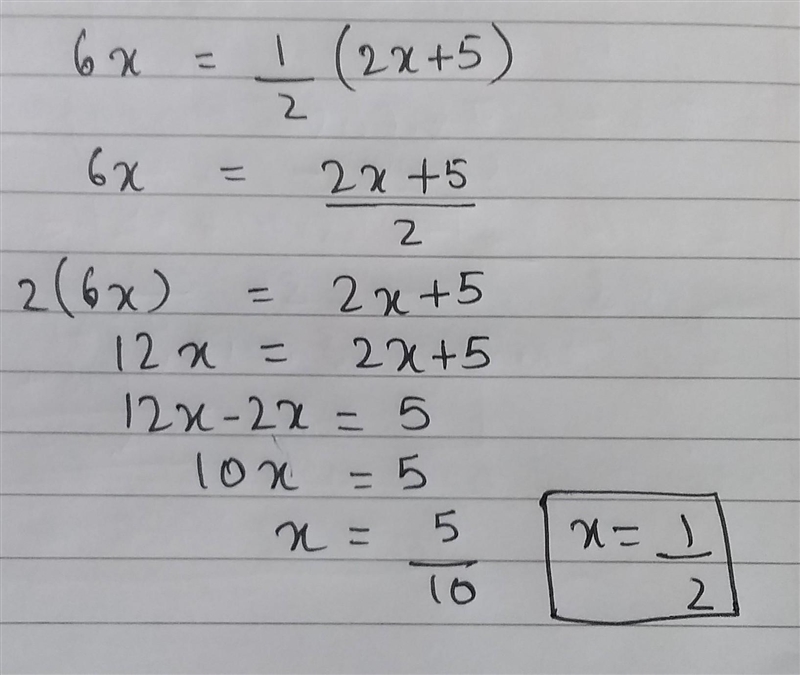 6x = 1/2 (2x+5)
6x = 2x+5/2
2(6x) = 2x+5
12x = 2x+5
12x-2x = 5
10x = 5
x = 5/10
x = 1/2